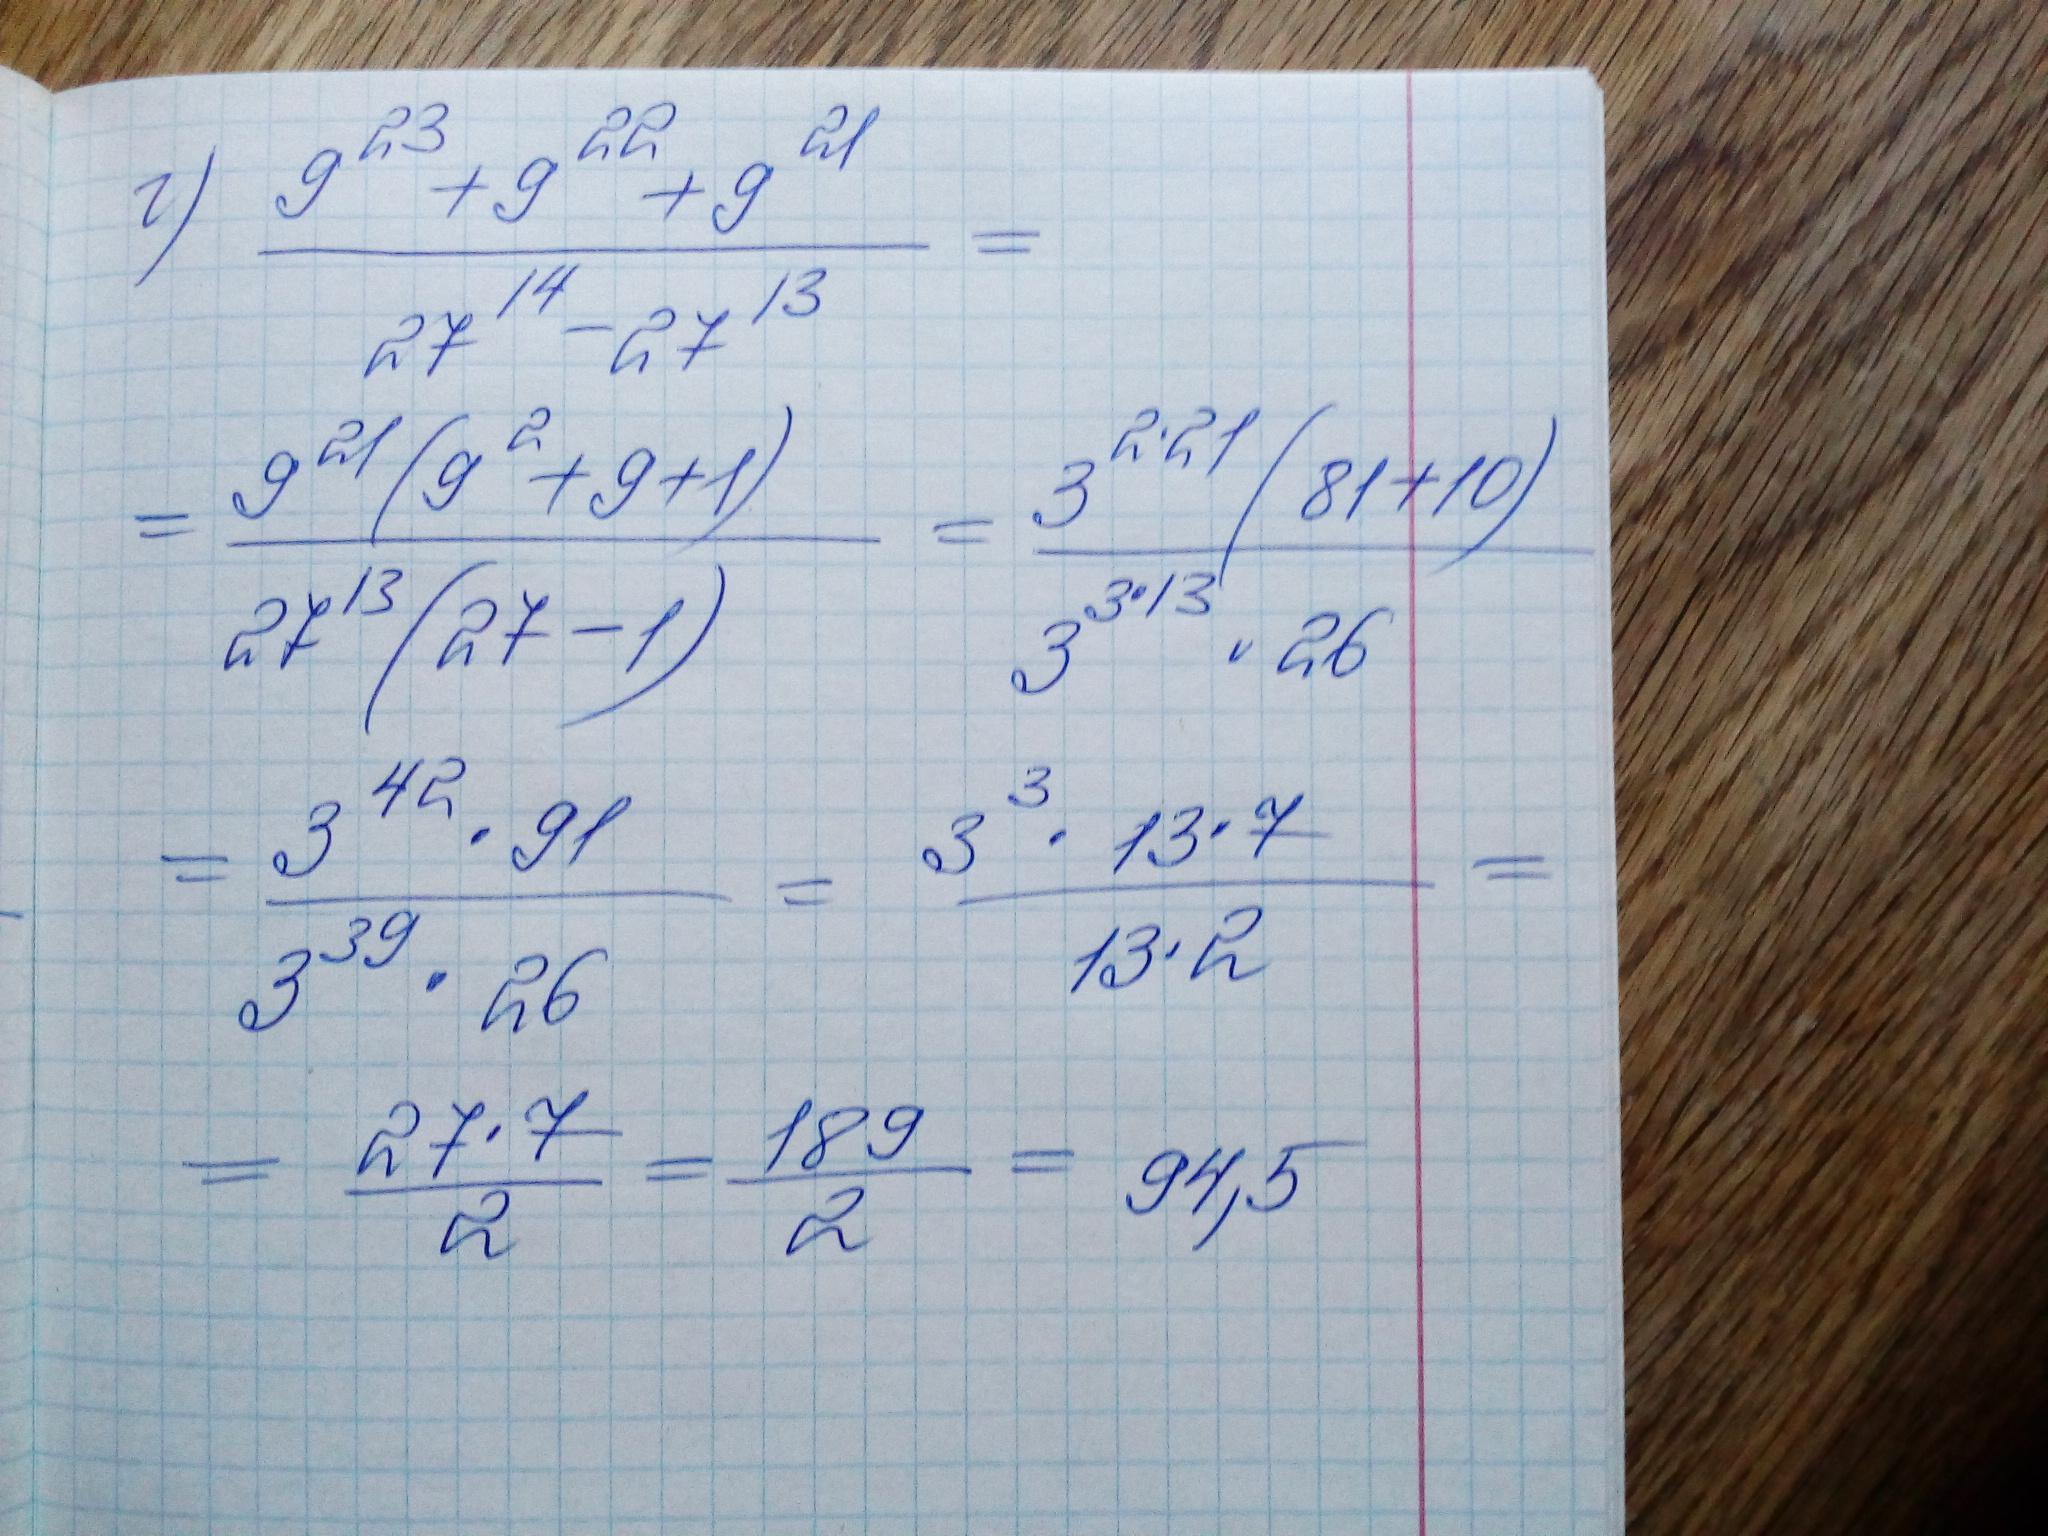 г) (9^23 + 9^22 + 9^21) / (27^14 - 27^13) =
= (9^21 (9^2 + 9 + 1)) / (27^13 (27 - 1)) = (3^(2·21) (81 + 10)) / (3^(3·13) · 26)
= (3^42 · 91) / (3^39 · 26) = (3^3 · 13 · 7) / (13 · 2) =
= (27 · 7) / 2 = 189 / 2 = 94,5